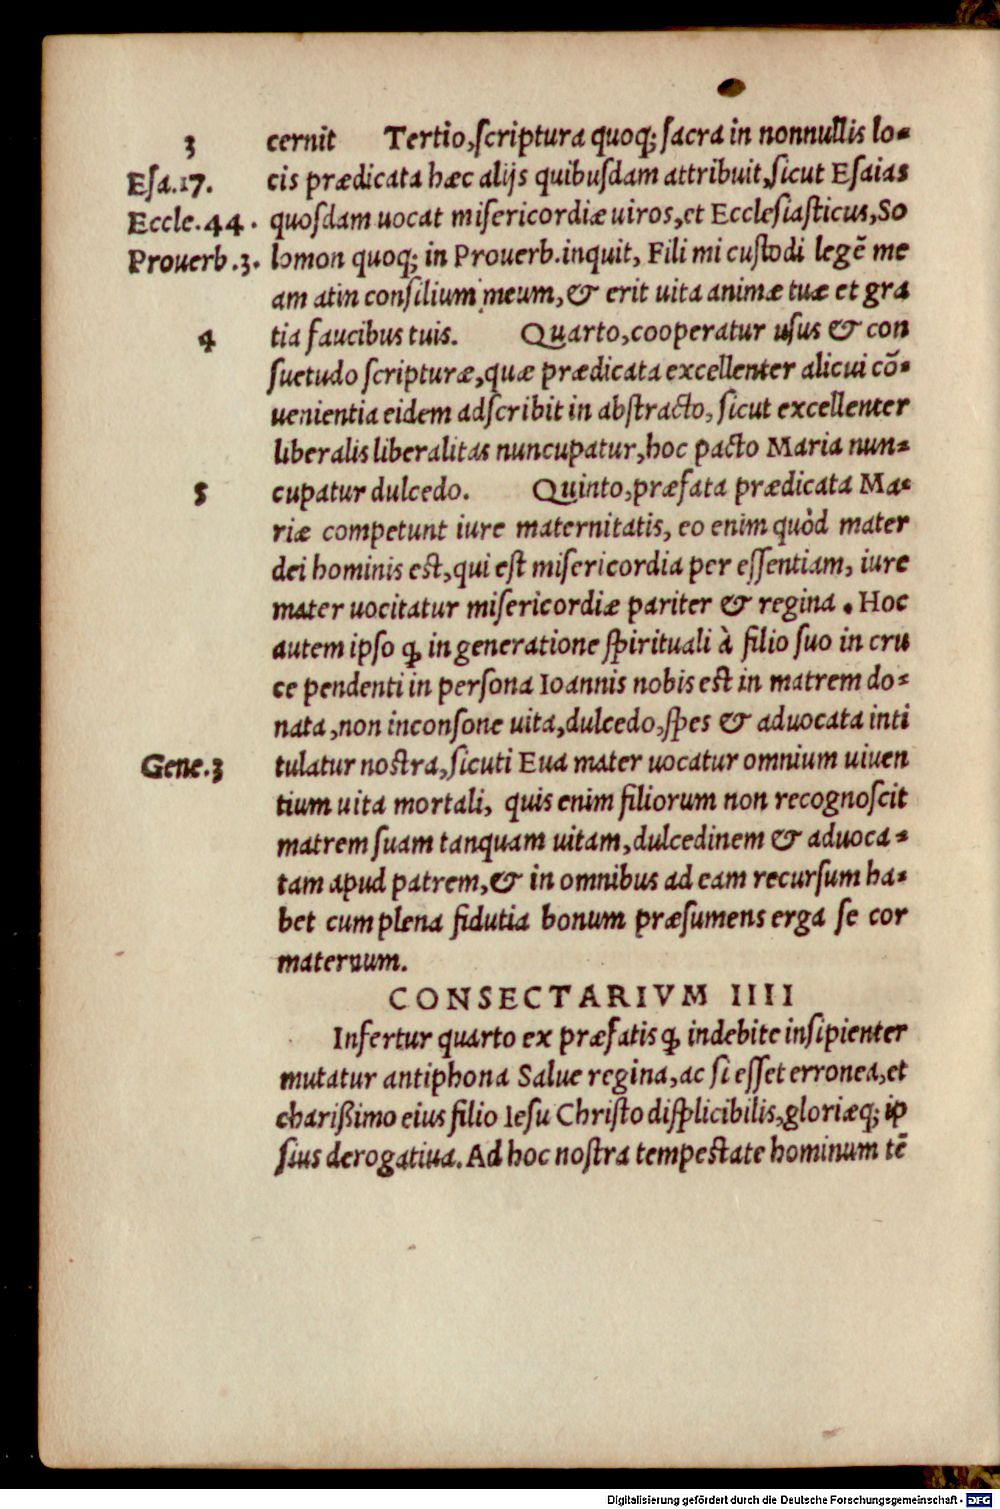 3 cernit Tertio,scriptura quoq; sacra in nonnullis lo-
Esa.17. cis prædicata hæc alijs quibusdam attribuit,sicut Esaias
Eccle.44. quosdam uocat misericordiæ uiros,et Ecclesiasticus,So
Prouerb.3. lomon quoq; in Prouerb.inquit, Fili mi custodi legē me
am atin consilium meum,& erit uita animæ tuæ et gra
4 tia faucibus tuis. Quarto,cooperatur usus & con
suetudo scripturæ,quæ prædicata excellenter alicui cō-
uenientia eidem adscribit in abstracto, sicut excellenter
liberalis liberalitas nuncupatur,hoc pacto Maria nun-
5 cupatur dulcedo. Quinto,præfata prædicata Ma-
riæ competunt iure maternitatis, eo enim quòd mater
dei hominis est,qui est misericordia per essentiam, iure
mater uocitatur misericordiæ pariter & regina. Hoc
autem ipso ꝙ in generatione spirituali à filio suo in cru
ce pendenti in persona Ioannis nobis est in matrem do-
nata,non inconsone uita,dulcedo,spes & aduocata inti
Gene.3 tulatur nostra,sicuti Eua mater uocatur omnium uiuen
tium uita mortali, quis enim filiorum non recognoscit
matrem suam tanquam uitam,dulcedinem & aduoca-
tam apud patrem,& in omnibus ad eam recursum ha-
bet cum plena fidutia bonum præsumens erga se cor
maternum.
CONSECTARIVM IIII
Infertur quarto ex præfatis ꝙ indebite insipienter
mutatur antiphona Salue regina,ac si esset erronea,et
charißimo eius filio Iesu Christo displicibilis,gloriæq; ip
sius derogatiua. Ad hoc nostra tempestate hominum tē
Digitalisierung gefördert durch die Deutsche Forschungsgemeinschaft - DFG